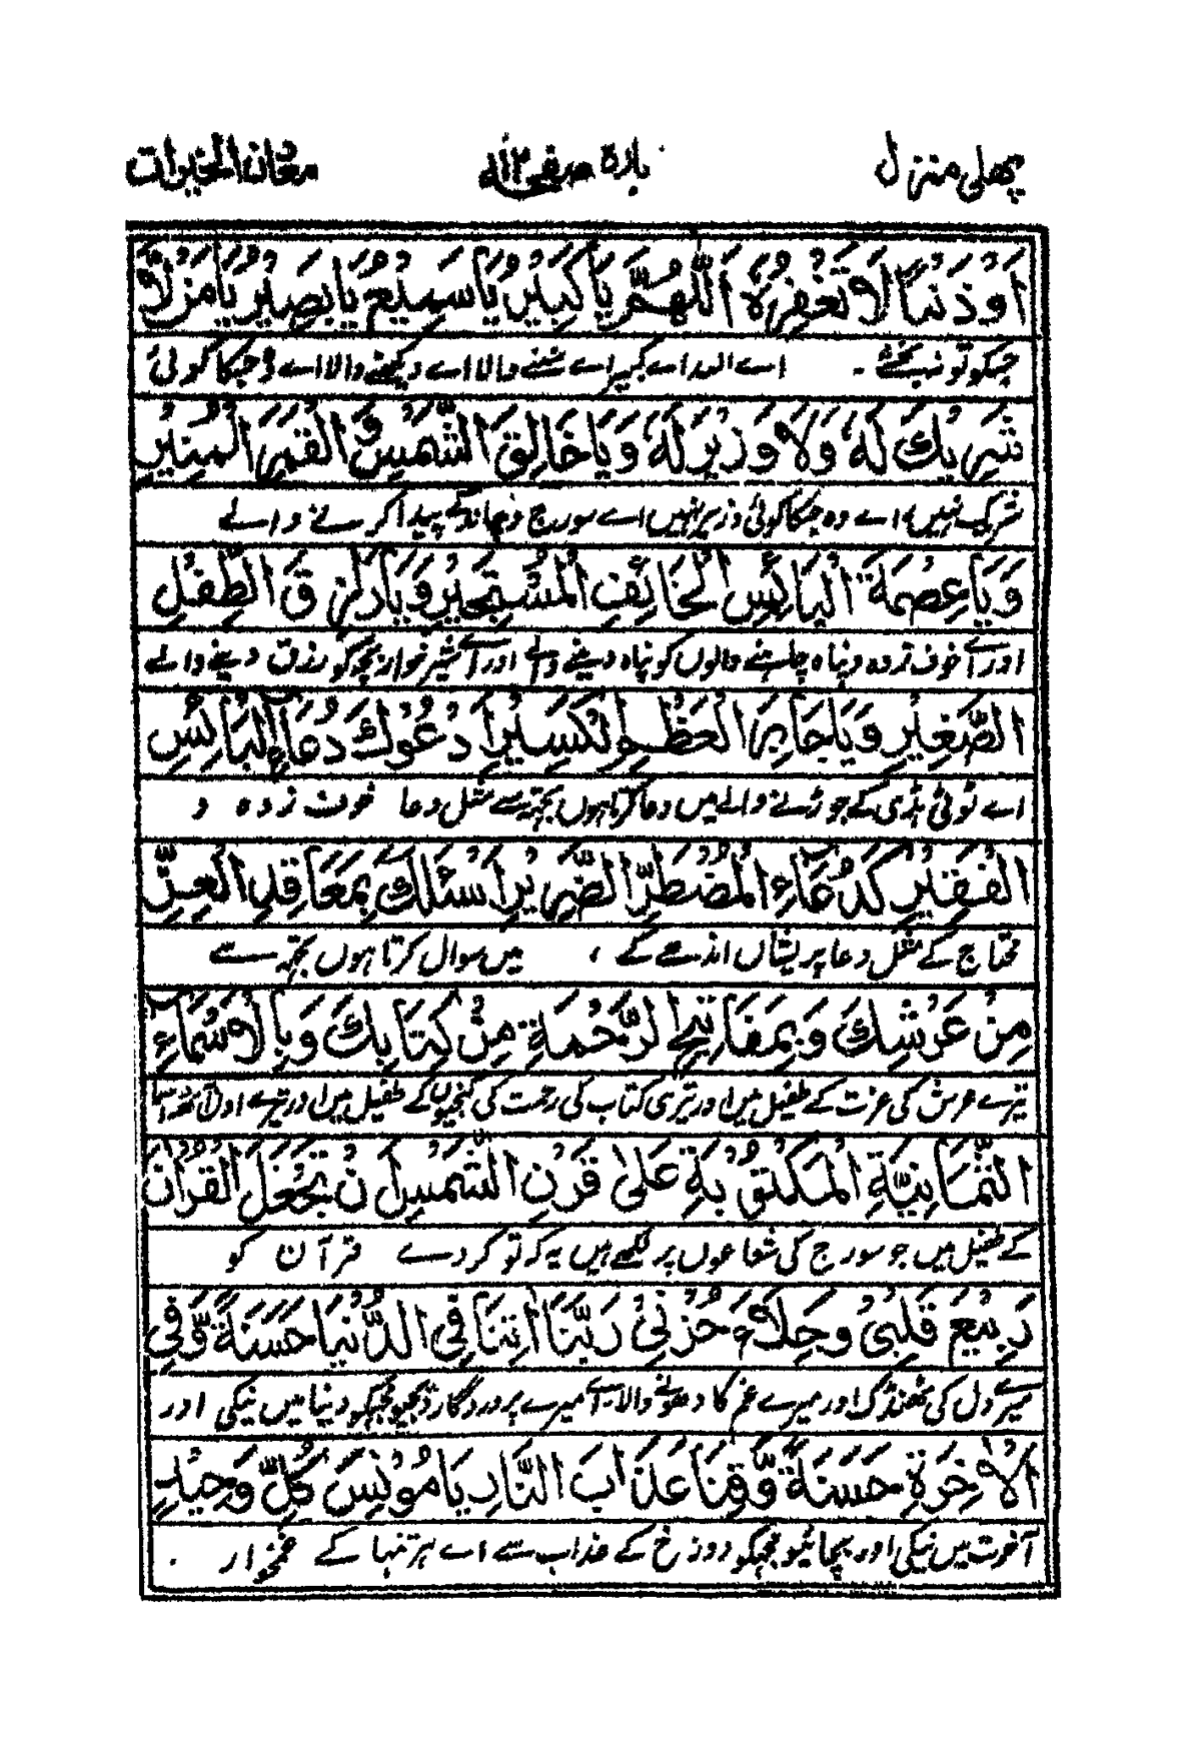 پھلی منزل
پارہ صفحہ ۱۱۲
معدن الخیرات
اَوْ ذَنْبًا لَا تَغْفِرُهٗ اَللّٰهُمَّ يَا كَبِيْرُ يَا سَمِيْعُ يَا بَصِيْرُ يَا مَنْ لَّا
جسکو تو نہ بخشے ۔ اے اللہ اے کبیر اے سننے والا اے دیکھنے والا اے وہ جسکا کوئی
شَرِيْكَ لَهٗ وَلَا وَزِيْرَ لَهٗ وَيَا خَالِقَ الشَّمْسِ وَالْقَمَرِ الْمُنِيْرِ
شریک نہیں، اے وہ جسکا کوئی وزیر نہیں اے سورج و چاند کے پیدا کرنے والے
وَيَا عِصْمَةَ الْبَائِسِ الْخَائِفِ الْمُسْتَجِيْرِ وَيَا رَازِقَ الطِّفْلِ
اور اے خوف زدہ و پناہ چاہنے والوں کو پناہ دینے والے اور اے شیر خوار بچہ کو رزق دینے والے
الصَّغِيْرِ وَيَا جَابِرَ الْعَظْمِ الْكَسِيْرِ اَدْعُوْكَ دُعَآءَ الْبَائِسِ
اے ٹوٹی ہڈی کے جوڑنے والے میں دعا کرتا ہوں تجھ سے مثل دعا خوف زدہ و
الْفَقِيْرِ كَدُعَآءِ الْمُضْطَرِّ الضَّرِيْرِ اَسْئَلُكَ بِمَعَاقِدِ الْعِزِّ
محتاج کے مثل دعا پریشاں اندھے کے ، میں سوال کرتا ہوں تجھ سے
مِنْ عَرْشِكَ وَبِمَفَاتِيْحِ الرَّحْمَةِ مِنْ كِتَابِكَ وَبِالْاَسْمَآءِ
تیرے عرش کی عزت کے طفیل میں اور تیری کتاب کی رحمت کی کنجیوں کے طفیل میں اور تیرے اون
الثَّمَانِيَةِ الْمَكْتُوْبَةِ عَلٰى قَرْنِ الشَّمْسِ اَنْ تَجْعَلَ الْقُرْاٰنَ
کے طفیل میں جو سورج کی شعاعوں پر لکھے ہیں یہ کہ تو کر دے قرآن کو
رَبِيْعَ قَلْبِىْ وَجِلَآءَ حُزْنِىْ رَبَّنَا اٰتِنَا فِى الدُّنْيَا حَسَنَةً وَّفِى
میرے دل کی ٹھنڈک اور میرے غم کا دھونے والا۔ اے میرے پروردگار دیجیو مجھکو دنیا میں نیکی اور
الْاٰخِرَةِ حَسَنَةً وَّقِنَا عَذَابَ النَّارِ يَا مُوْنِسَ كُلِّ وَحِيْدٍ
آخرت میں نیکی اور بچائیو مجھکو دوزخ کے عذاب سے اے ہر تنہا کے غمخوار ۔